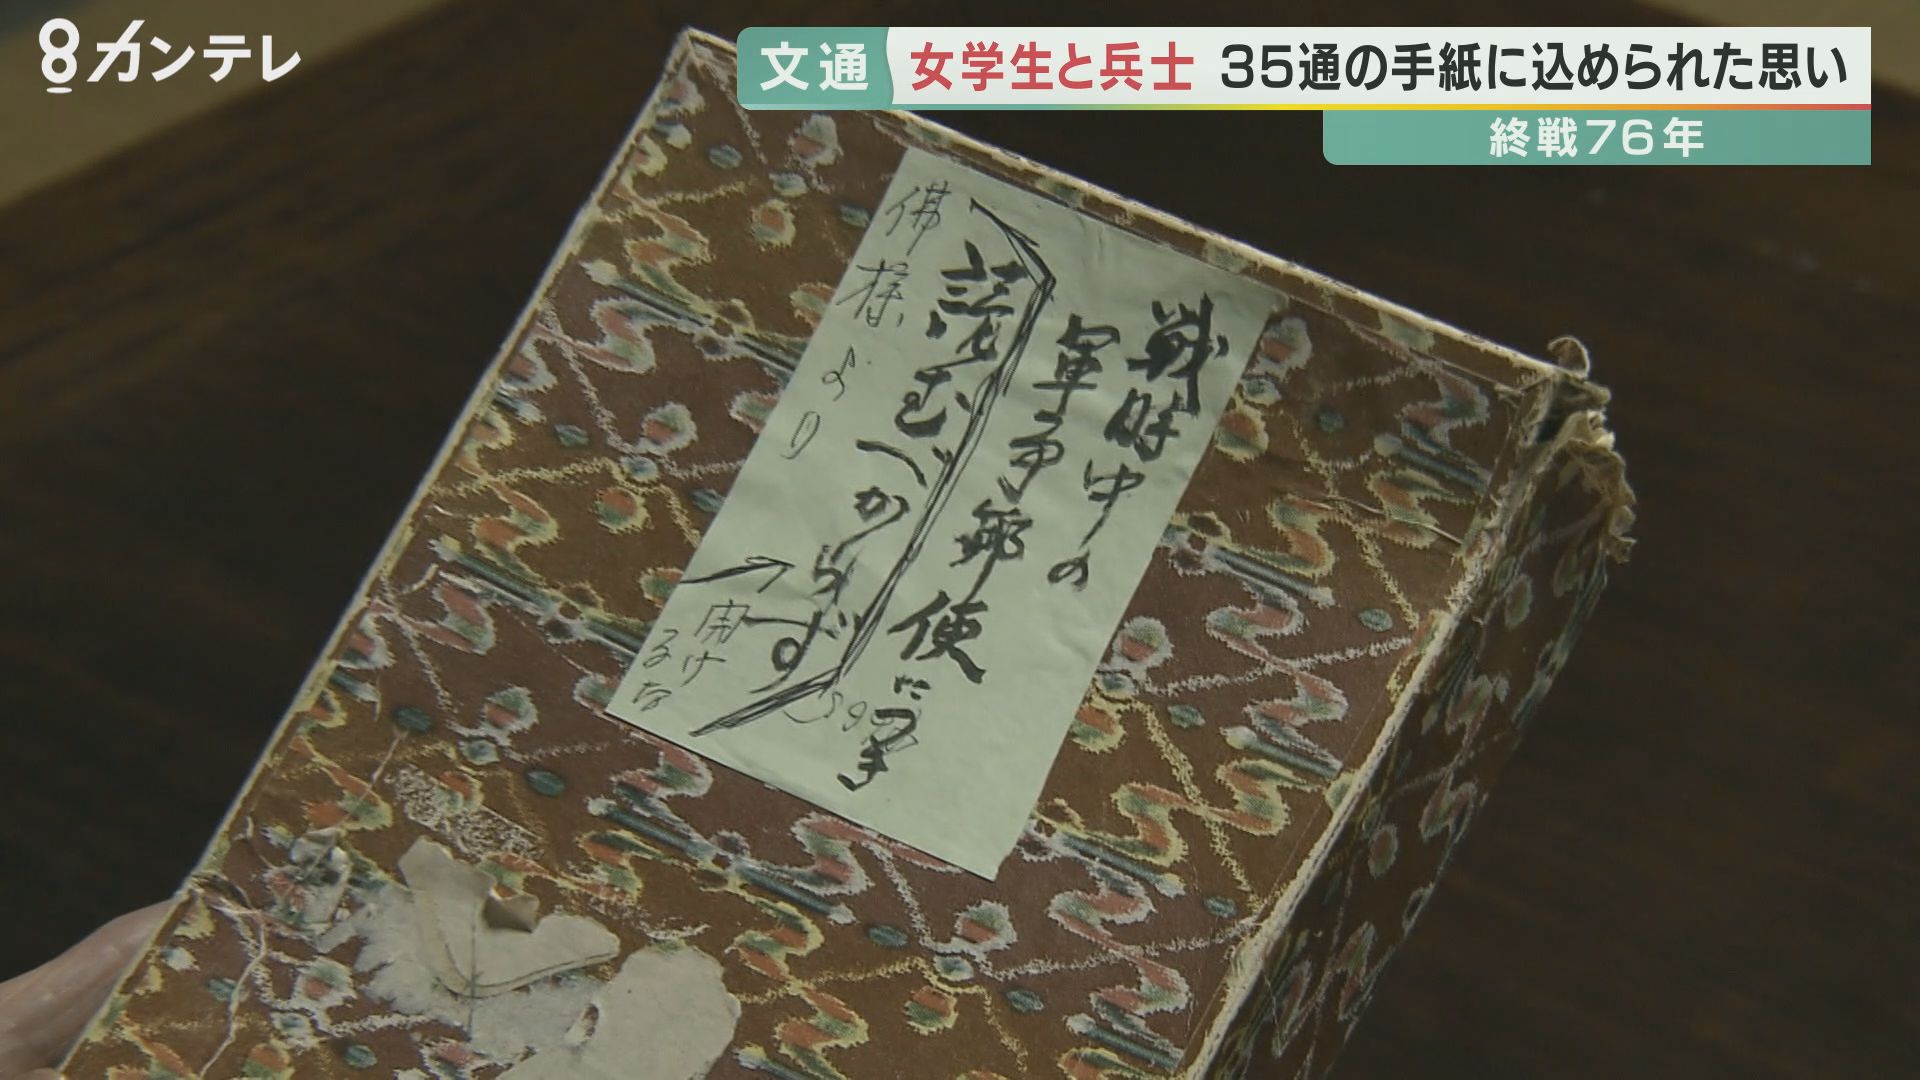 8カンテレ
文通
女学生と兵士 35通の手紙に込められた思い
終戦76年
戦時中の
軍事郵便に寄
読むべからず
佛様より
開け
るな